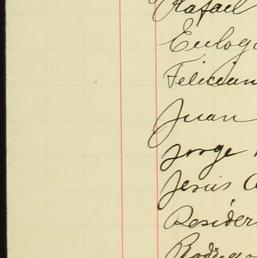 Rafael
Eulog
Felician
Juan
Jorge
Jesus
Resider
Rodrigo